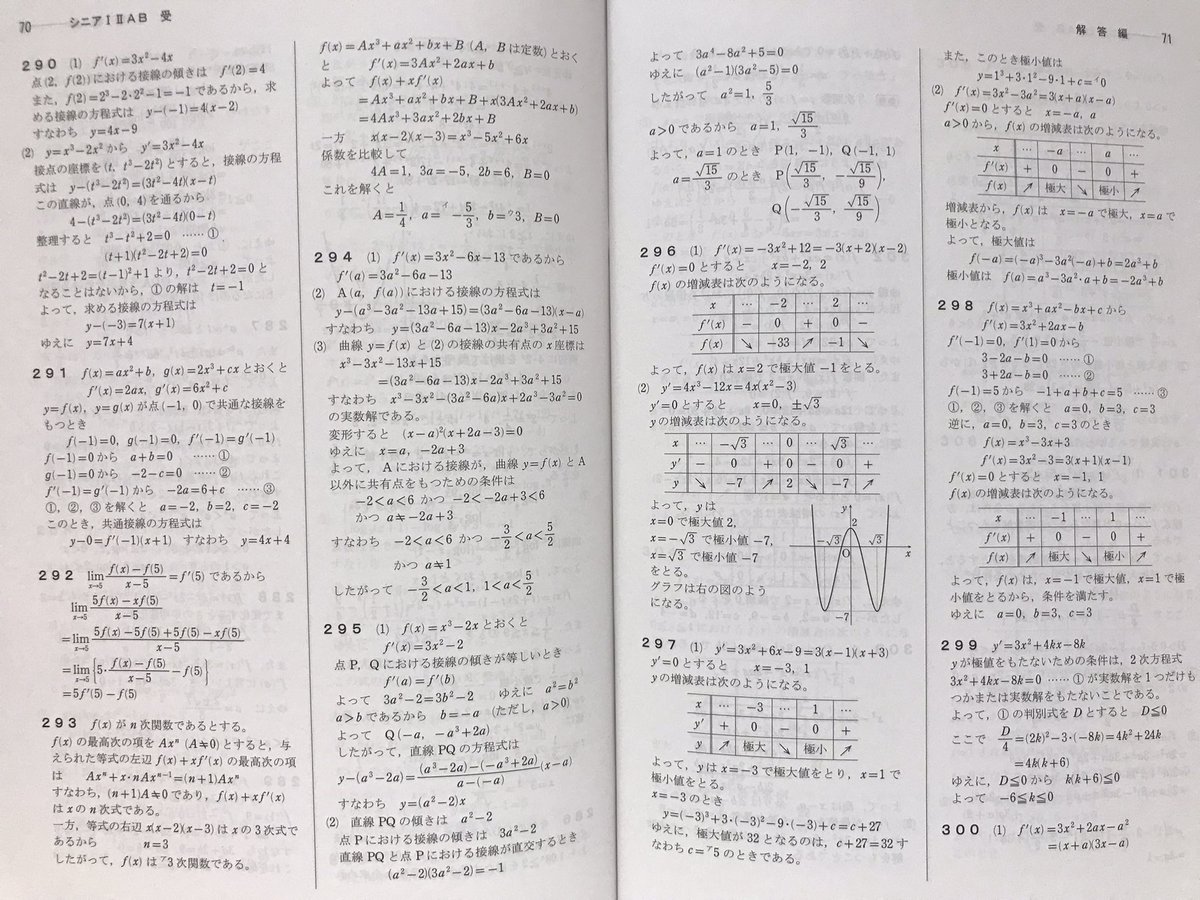 70 シニアⅠⅡAB 受
290 (1) f′(x)=3x²−4x
点(2, f(2))における接線の傾きは f′(2)=4
また，f(2)=2³−2・2²−1=−1であるから，求
める接線の方程式は y−(−1)=4(x−2)
すなわち y=4x−9
(2) y=x³−2x²から y′=3x²−4x
接点の座標を(t, t³−2t²)とすると，接線の方程
式は y−(t³−2t²)=(3t²−4t)(x−t)
この直線が，点(0, 4)を通るから
4−(t³−2t²)=(3t²−4t)(0−t)
整理すると t³−t²+2=0 ……①
(t+1)(t²−2t+2)=0
t²−2t+2=(t−1)²+1より，t²−2t+2=0と
なることはないから，①の解は t=−1
よって，求める接線の方程式は
y−(−3)=7(x+1)
ゆえに y=7x+4
291 f(x)=ax²+b, g(x)=2x³+cxとおくと
f′(x)=2ax, g′(x)=6x²+c
y=f(x), y=g(x)が点(−1, 0)で共通な接線を
もつとき
f(−1)=0, g(−1)=0, f′(−1)=g′(−1)
f(−1)=0から a+b=0 ……①
g(−1)=0から −2−c=0 ……②
f′(−1)=g′(−1)から −2a=6+c ……③
①，②，③を解くと a=−2, b=2, c=−2
このとき，共通接線の方程式は
y−0=f′(−1)(x+1) すなわち y=4x+4
292 lim[x→5] (f(x)−f(5))/(x−5)=f′(5)であるから
lim[x→5] (5f(x)−xf(5))/(x−5)
=lim[x→5] (5f(x)−5f(5)+5f(5)−xf(5))/(x−5)
=lim[x→5] {5・(f(x)−f(5))/(x−5)−f(5)}
=5f′(5)−f(5)
293 f(x)がn次関数であるとする。
f(x)の最高次の項をAxⁿ (A≠0)とすると，与
えられた等式の左辺f(x)+xf′(x)の最高次の項
は Axⁿ+x・nAxⁿ⁻¹=(n+1)Axⁿ
すなわち，(n+1)A≠0であり，f(x)+xf′(x)
はxのn次式である。
一方，等式の右辺x(x−2)(x−3)はxの3次式で
あるから n=3
したがって，f(x)は ア3次関数である。
f(x)=Ax³+ax²+bx+B (A, Bは定数)とおく
と f′(x)=3Ax²+2ax+b
よって f(x)+xf′(x)
=Ax³+ax²+bx+B+x(3Ax²+2ax+b)
=4Ax³+3ax²+2bx+B
一方 x(x−2)(x−3)=x³−5x²+6x
係数を比較して
4A=1, 3a=−5, 2b=6, B=0
これを解くと
A=1/4, a=イ −5/3, b=ウ3, B=0
294 (1) f′(x)=3x²−6x−13であるから
f′(a)=3a²−6a−13
(2) A(a, f(a))における接線の方程式は
y−(a³−3a²−13a+15)=(3a²−6a−13)(x−a)
すなわち y=(3a²−6a−13)x−2a³+3a²+15
(3) 曲線y=f(x)と(2)の接線の共有点のx座標は
x³−3x²−13x+15
=(3a²−6a−13)x−2a³+3a²+15
すなわち x³−3x²−(3a²−6a)x+2a³−3a²=0
の実数解である。
変形すると (x−a)²(x+2a−3)=0
ゆえに x=a, −2a+3
よって，Aにおける接線が，曲線y=f(x)とA
以外に共有点をもつための条件は
−2<a<6 かつ −2<−2a+3<6
かつ a≠−2a+3
すなわち −2<a<6 かつ −3/2<a<5/2
かつ a≠1
したがって −3/2<a<1, 1<a<5/2
295 (1) f(x)=x³−2xとおくと
f′(x)=3x²−2
点P, Qにおける接線の傾きが等しいとき
f′(a)=f′(b)
よって 3a²−2=3b²−2 ゆえに a²=b²
a>bであるから b=−a (ただし，a>0)
よって Q(−a, −a³+2a)
したがって，直線PQの方程式は
y−(a³−2a)=((a³−2a)−(−a³+2a))/(a−(−a))(x−a)
すなわち y=(a²−2)x
(2) 直線PQの傾きは a²−2
点Pにおける接線の傾きは 3a²−2
直線PQと点Pにおける接線が直交するとき
(a²−2)(3a²−2)=−1
解答編 71
よって 3a⁴−8a²+5=0
ゆえに (a²−1)(3a²−5)=0
したがって a²=1, 5/3
a>0であるから a=1, √15/3
よって，a=1のとき P(1, −1), Q(−1, 1)
a=√15/3 のとき P(√15/3, −√15/9),
Q(−√15/3, √15/9)
296 (1) f′(x)=−3x²+12=−3(x+2)(x−2)
f′(x)=0とすると x=−2, 2
f(x)の増減表は次のようになる。
x … −2 … 2 …
f′(x) − 0 + 0 −
f(x) ↘ −33 ↗ −1 ↘
よって，f(x)はx=2で極大値−1をとる。
(2) y′=4x³−12x=4x(x²−3)
y′=0とすると x=0, ±√3
yの増減表は次のようになる。
x … −√3 … 0 … √3 …
y′ − 0 + 0 − 0 +
y ↘ −7 ↗ 2 ↘ −7 ↗
よって，yは
x=0で極大値2,
x=−√3で極小値−7,
x=√3で極小値−7
をとる。
グラフは右の図のよう
になる。
y
2
−√3 O √3 x
−7
297 (1) y′=3x²+6x−9=3(x−1)(x+3)
y′=0とすると x=−3, 1
yの増減表は次のようになる。
x … −3 … 1 …
y′ + 0 − 0 +
y ↗ 極大 ↘ 極小 ↗
よって，yはx=−3で極大値をとり，x=1で
極小値をとる。
x=−3のとき
y=(−3)³+3・(−3)²−9・(−3)+c=c+27
ゆえに，極大値が32となるのは，c+27=32す
なわちc=ア5のときである。
また，このとき極小値は
y=1³+3・1²−9・1+c=イ0
(2) f′(x)=3x²−3a²=3(x+a)(x−a)
f′(x)=0とすると x=−a, a
a>0から，f(x)の増減表は次のようになる。
x … −a … a …
f′(x) + 0 − 0 +
f(x) ↗ 極大 ↘ 極小 ↗
増減表から，f(x)は x=−aで極大，x=aで
極小となる。
よって，極大値は
f(−a)=(−a)³−3a²(−a)+b=2a³+b
極小値は f(a)=a³−3a²・a+b=−2a³+b
298 f(x)=x³+ax²−bx+cから
f′(x)=3x²+2ax−b
f′(−1)=0, f′(1)=0から
3−2a−b=0 ……①
3+2a−b=0 ……②
f(−1)=5から −1+a+b+c=5 ……③
①，②，③を解くと a=0, b=3, c=3
逆に，a=0, b=3, c=3のとき
f(x)=x³−3x+3
f′(x)=3x²−3=3(x+1)(x−1)
f′(x)=0とすると x=−1, 1
f(x)の増減表は次のようになる。
x … −1 … 1 …
f′(x) + 0 − 0 +
f(x) ↗ 極大 ↘ 極小 ↗
よって，f(x)は，x=−1で極大値，x=1で極
小値をとるから，条件を満たす。
ゆえに a=0, b=3, c=3
299 y′=3x²+4kx−8k
yが極値をもたないための条件は，2次方程式
3x²+4kx−8k=0 ……①が実数解を1つだけも
つかまたは実数解をもたないことである。
よって，①の判別式をDとすると D≦0
ここで D/4=(2k)²−3・(−8k)=4k²+24k
=4k(k+6)
ゆえに，D≦0から k(k+6)≦0
よって −6≦k≦0
300 (1) f′(x)=3x²+2ax−a²
=(x+a)(3x−a)